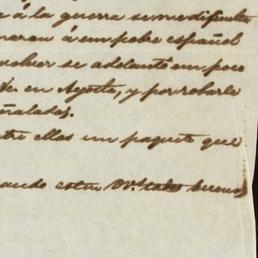 á la guerra se me dificulta
á un pobre español
volver se adelantó un poco
en Agosto, y por robarle
ñalados.
tre ellos un paquete que
ando estén Vs. todos buenos